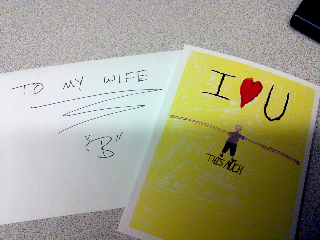 TO MY WIFE
"B"
I ❤ U
THIS MUCH